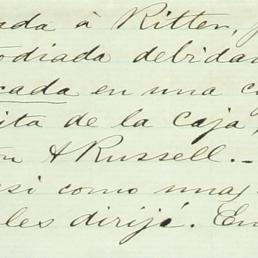 ada á Ritter,
odiada debida
cada en una c
ita de la Caja,
on A Russell.-
asi como unas
les dirijé. En